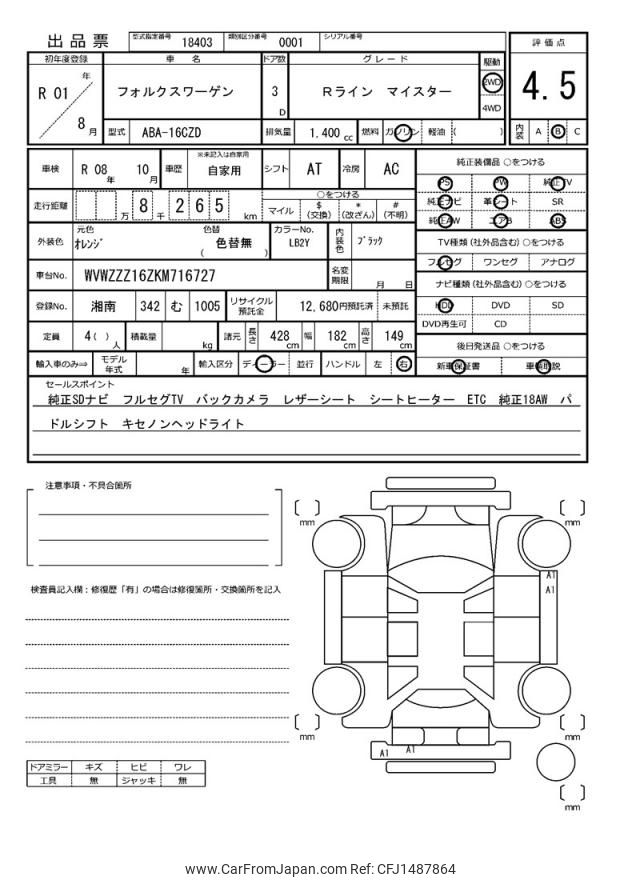 出品票 型式指定番号 18403 類別区分番号 0001 シリアル番号
評価点
4.5
内装 A B C
初年度登録 車 名 ドア数 グレード 駆動
R 01 年 8 月
フォルクスワーゲン 3 D Rライン マイスター 2WD 4WD
型式 ABA-16CZD 排気量 1,400 cc 燃料 ガソリン 軽油 ( )
車検 R 08 年 10 月 車歴 ※未記入は自家用 自家用 シフト AT 冷房 AC
走行距離 8 2 6 5 万 千 km ○をつける
マイル $ (交換) * (改ざん) # (不明)
外装色 元色 オレンジ 色替 色替無 ( ) カラーNo. LB2Y 内装色 ブラック
車台No. WVWZZZ16ZKM716727 名変期限 月 日
登録No. 湘南 342 む 1005 リサイクル預託金 12,680円預託済 未預託
定員 4( ) 人 積載量 kg 諸元 長さ 428 cm 幅 182 cm 高さ 149 cm
輸入車のみ⇒ モデル年式 年 輸入区分 ディーラー 並行 ハンドル 左 右
純正装備品 ○をつける
PS PW 純正TV
純正ナビ 革シート SR
純正AW エアB ABS
TV種類 (社外品含む) ○をつける
フルセグ ワンセグ アナログ
ナビ種類 (社外品含む) ○をつける
HDD DVD SD
DVD再生可 CD
後日発送品 ○をつける
新車保証書 車輌取説
セールスポイント
純正SDナビ フルセグTV バックカメラ レザーシート シートヒーター ETC 純正18AW パ
ドルシフト キセノンヘッドライト
注意事項・不具合箇所
検査員記入欄:修復歴「有」の場合は修復箇所・交換箇所を記入
ドアミラー キズ ヒビ ワレ
工具 無 ジャッキ 無
mm mm
A1
A1
mm mm
A1 A1
mm
www.CarFromJapan.com Ref: CFJ1487864